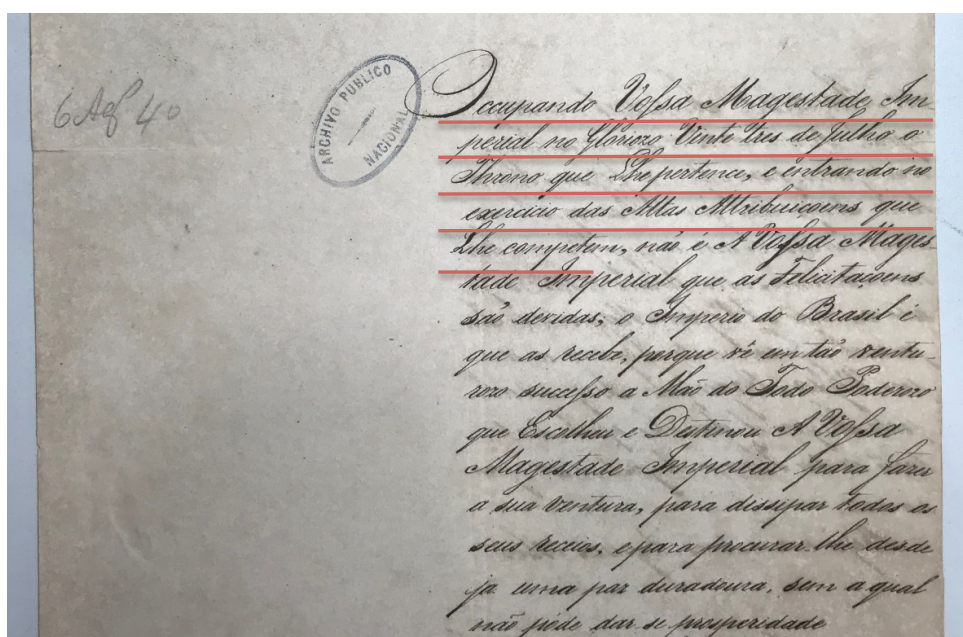 6 Ag 40
ARCHIVO PUBLICO
NACIONAL
Occupando Vossa Magestade, Im
perial no Gloriozo Vinte tres de Julho o
Throno que Lhe pertence, e entrando no
exercicio das Altas Attribuiçoens que
Lhe competem, não é A Vossa Mages
tade Imperial que as Felicitaçoens
são devidas; o Imperio do Brasil é
que as recebe, porque vê em tão ventu-
rozo successo a Mão do Todo Poderozo
que Escolheu e Destinou A Vossa
Magestade Imperial para fazer
a sua ventura, para dissipar todos os
seus receios, e para procurar-lhe desde
ja uma paz duradoura, sem a qual
não póde dar se prosperidade